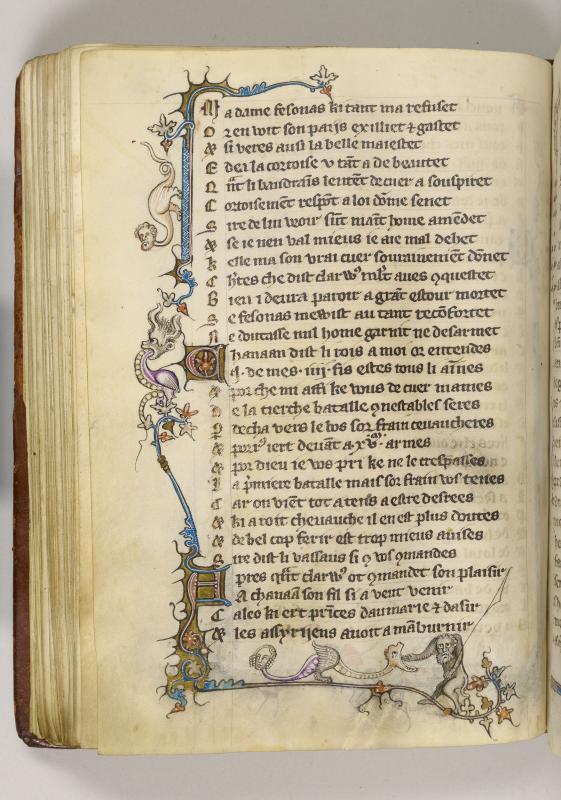 M a dame fesonas ki tant ma refuset
O r en voit son pais exilliet ⁊ gastet
⁊ si veres ausi la belle maiestet
E dea la cortoise u tāt a de beautet
Q nt li baudrains lentēt de cuer a souspiret
C ortoisemēt respōt a loi dōme senet
S ire de lui veoir sūt maīt home amēdet
⁊ se ie nen val mieus ie aie mal dehet
k elle ma son vrai cuer souvrainemēt dōnet
C h'tes che dist clar aves ꝯquestet
B ien i devra paroir a grāt estour mortet
S e fesonas mewist autant recōfortet
N e doutasse nul home garnit ne desarmet
C hanaan dist li rois a moi or entendes
q̄ de mes .iiii. fis estes tous li ainnes
⁊ por che mi affi ke vous de cuer mames
D e la tierche batalle ꝯnestables seres
P decha vers le bos sor frain cevaucheres
⁊ iert devāt a .xv. armes
⁊ por dieu ie vos pri ke ne le trespasses
L a p̄miere batalle mais sor frain vos tenes
C ar on viēt tot a tens a estre desrees
⁊ ki a roit chevauche il en est plus doutes
⁊ de bel cop ferir est trop mieus avises
S ire dist li vassaus si ꝯ vos ꝯmandes
A pres q̄t clar ot ꝯmandet son plaisir
A chanaā son fil si a veut venir
C aleo ki ert prīces daumarie ⁊ dasir
⁊ les assyriiens avoit a māburnir